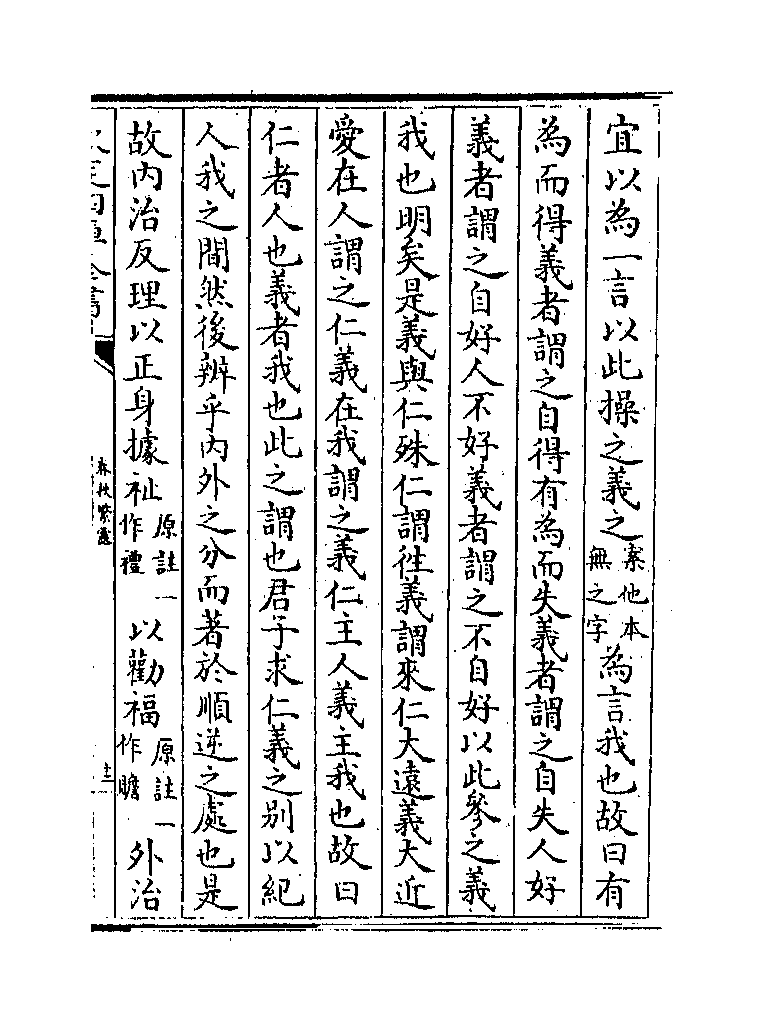 宜以為一言以此操之義之案他本無之字為言我也故曰有
為而得義者謂之自得有為而失義者謂之自失人好
義者謂之自好人不好義者謂之不自好以此參之義
我也明矣是義與仁殊仁謂徃義謂來仁大遠義大近
愛在人謂之仁義在我謂之義仁主人義主我也故曰
仁者人也義者我也此之謂也君子求仁義之别以紀
人我之間然後辨乎内外之分而著於順逆之處也是
故内治反理以正身據祉原註一作禮以勸福原註一作贍外治
春秋繁露